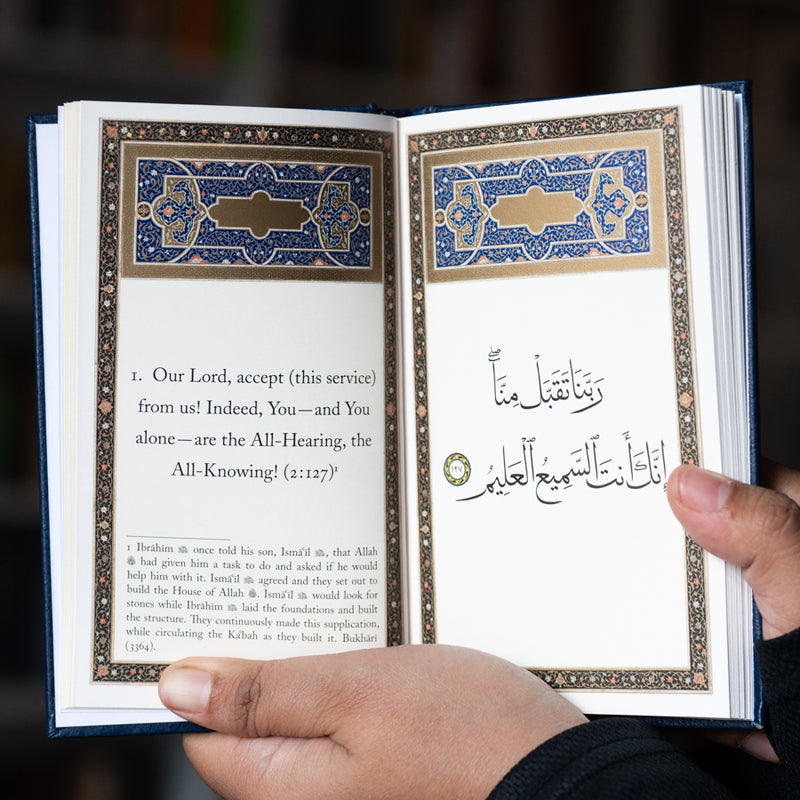 1. Our Lord, accept (this service)
from us! Indeed, You—and You
alone—are the All-Hearing, the
All-Knowing! (2:127)¹
1 Ibrāhīm once told his son, Ismāʿīl, that Allah
had given him a task to do and asked if he would
help him with it. Ismāʿīl agreed and they set out to
build the House of Allah. Ismāʿīl would look for
stones while Ibrāhīm laid the foundations and built
the structure. They continuously made this supplication,
while circulating the Kaʿbah as they built it. Bukhārī
(3364).
رَبَّنَا تَقَبَّلْ مِنَّاۖ
إِنَّكَ أَنتَ ٱلسَّمِيعُ ٱلْعَلِيمُ ١٢٧